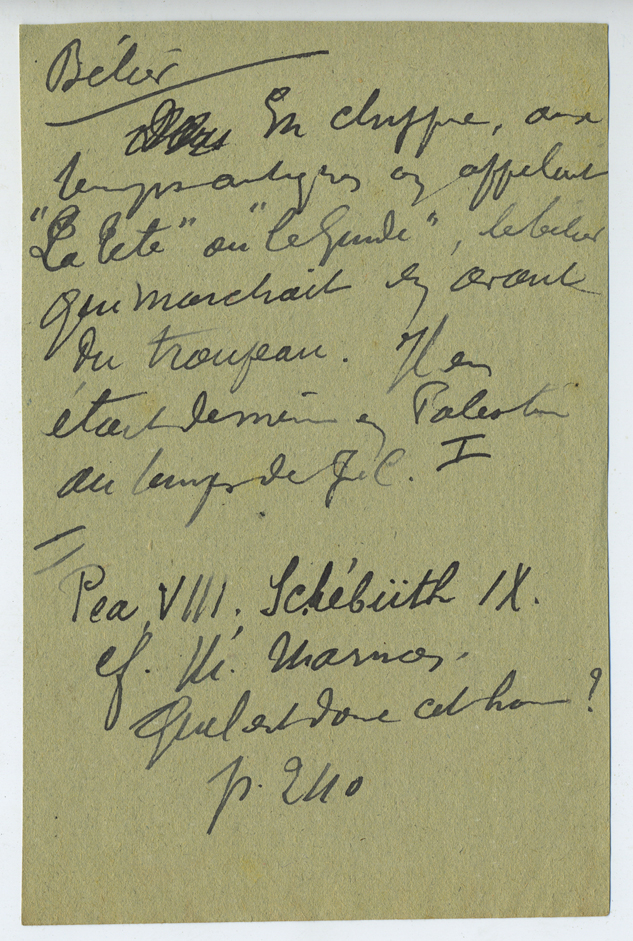 Bélier
En chyppre, aux
temps antiques on appelait
"La tête" ou "le Guide", le bélier
qui marchait en avant
du troupeau. Il en
était de même en Palestine
au temps de J. C. I
Pea VIII, Schébiith IX.
cf. Marnas.
Quel est donc cet hom ?
p. 240